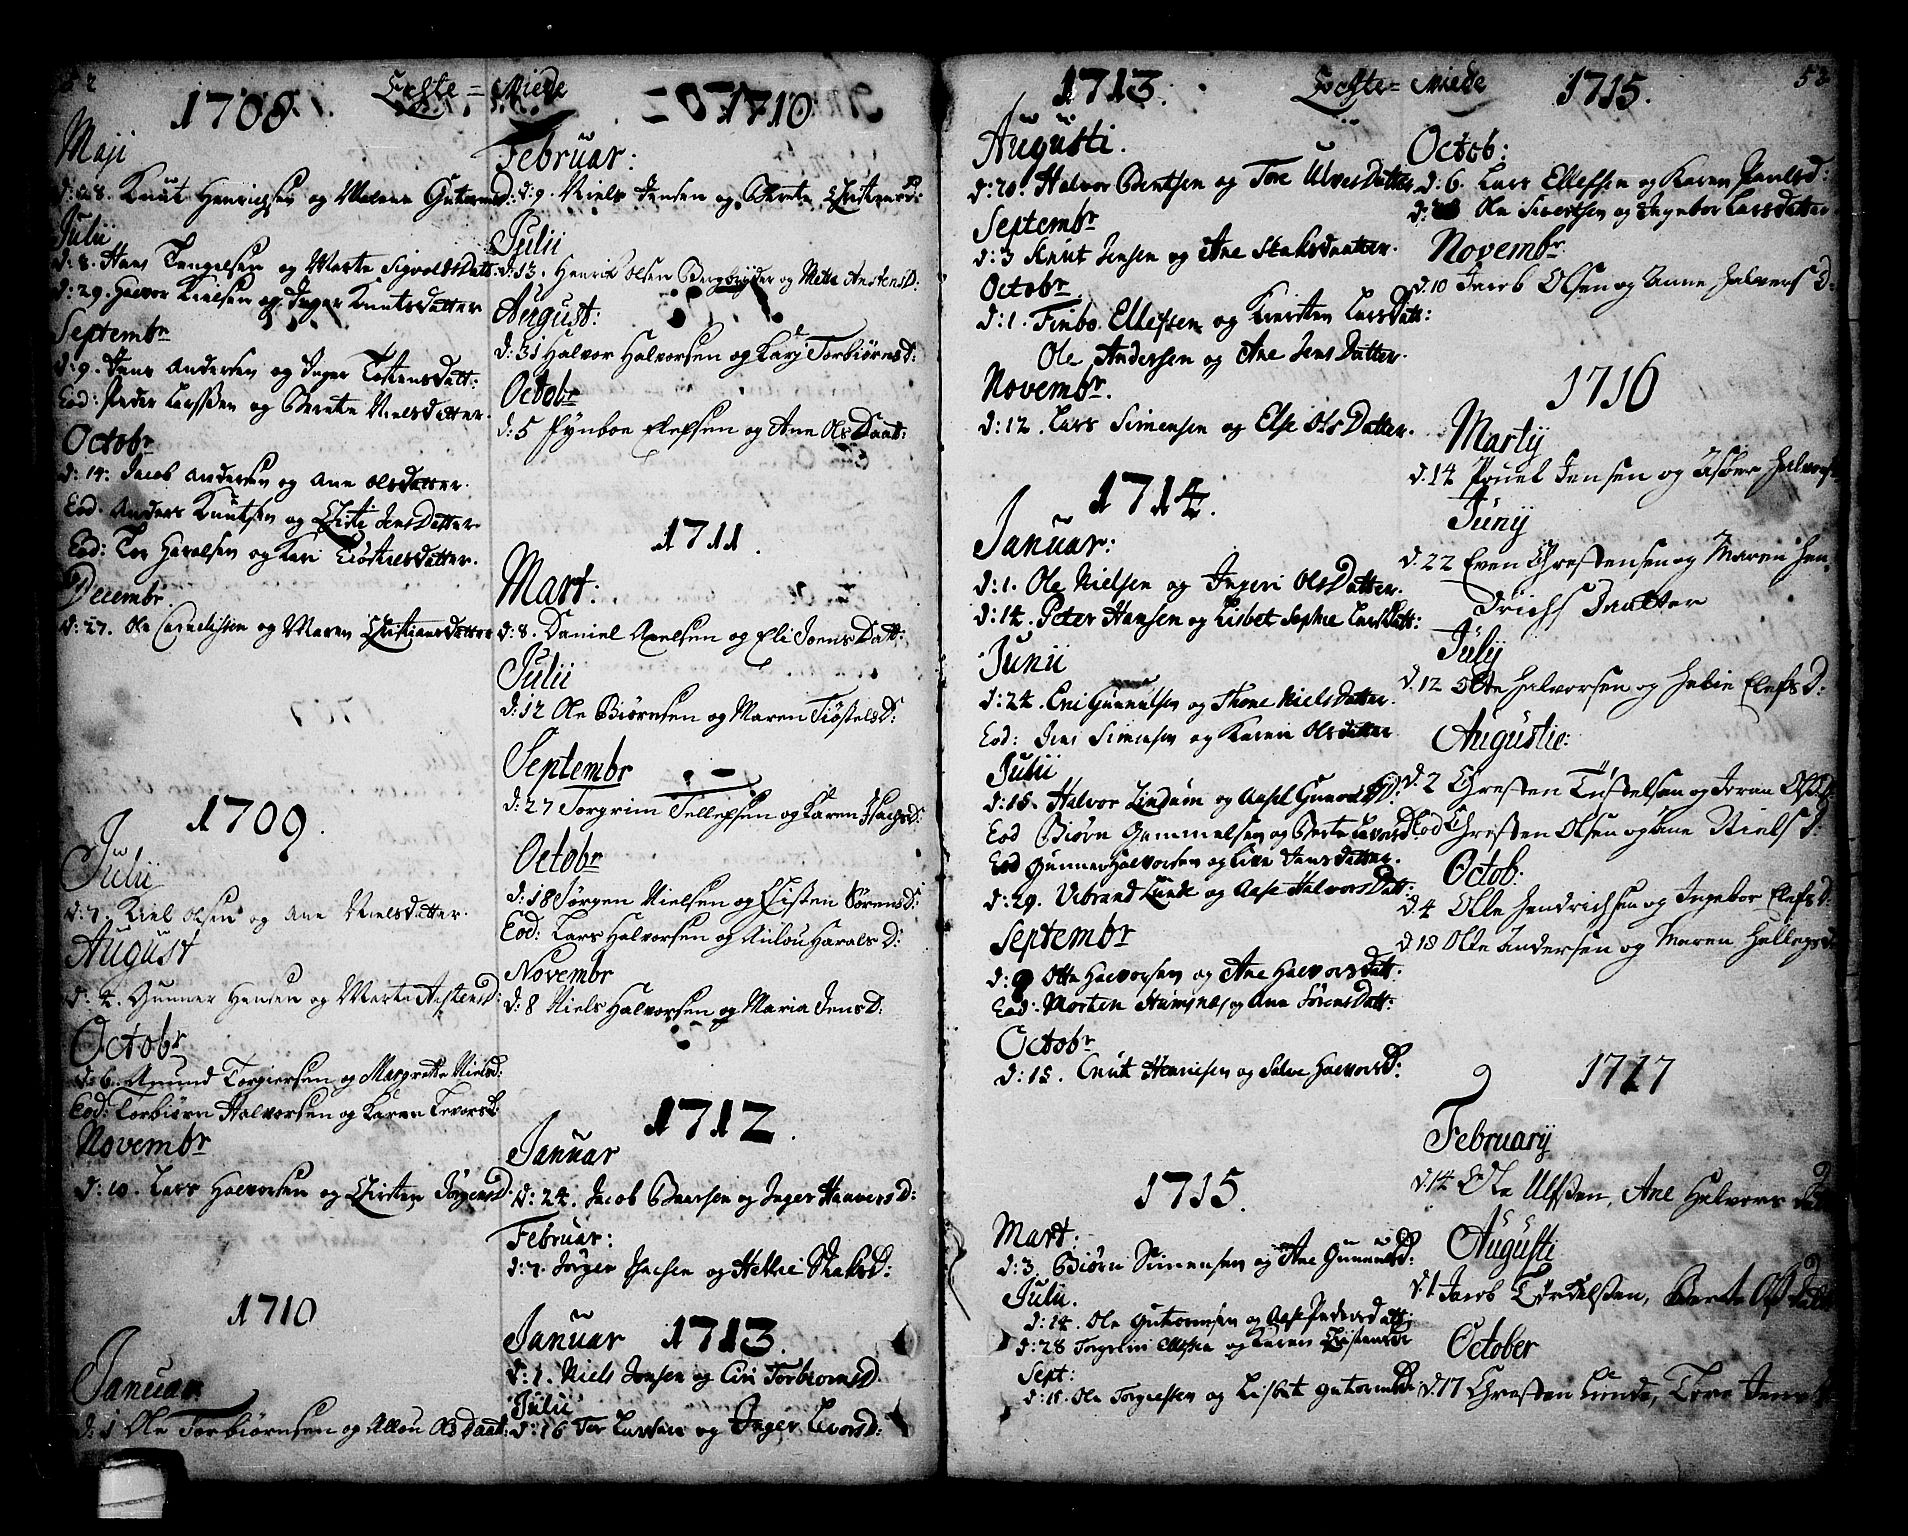 52
Echte = Miede
1708
Maji
d: 28. Knut Henrichsen og Malene GutormsD:
Julii
d. 8. Hans Tengelsen og Marte SigvoldsDatt:
d: 29. Halvor Kielsen og Inger KnutsDatter
Septembr
d: 9. Jens Andersen og Inger TostensDatt:
Eod: Peder Larssen og Berete NielsDatter.
Octobr
d: 14: Jacob Andersen og Ane Olsdatter.
Eod. Anders Knutsen og Christi JensDatter
Eod: Tor Haralsen og Kari Tiøstelsdatter.
Decembr
d: 27. Ole og Maren ChristiansDatter
1709.
Julii
d: 7. Kiel Olsen og Ane NielsDatter.
August
d. 4. Gunner Hansen og Marte AustensD:
Octobr
d: 6. Amund Torgiersen og Margrette Nielsd:
Eod: Torbiørn Halvorsen og Karen TevorsD:
Novembr
d: 10. Lars Halvorsen og Chirsten JørgensD:
1710
Januar
d: 1 Ole Torbiørnsen og Allou OlsDaat:
1710
Februar:
d: 9. Niels Jensen og Berete ChristensD:
Julii
d: 13. Henrik Olsen Bergbryder og Mette AnstensD:
August:
d: 31 Halvor Halvorsen og Karj TorbiørnsD:
Octobr
d: 5 Fynboe Elefsen og Ane OlsDaat:
1711.
Mart:
d: 8. Daniel Axelsen og Eli JoensDatt:
Julii
d: 12 Ole Biørnsen og Maren TiøstelsD:
Septembr
d: 27 Torgrim Tellefsen og Karen IsachsD:
Octobr
d: 18 Jørgen Nielsen og Chisten SørensD:
Eod: Lars Halvorsen og Aulou HaralsD:
Novembr
d: 8 Niels Halvorsen og Maria JensD:
1712.
Januar
d: 24. Jacob Baarsen og Inger HaaversD:
Februar:
d: 7. Jørgen Isacsen og Hellie SkaksD:
Januar 1713.
d: 1. Niels Jonsen og Ciri TorbiornsD
Julii
d: 16 Tor Larssen og Inger LevorsD:
1713.
Echte = Miede
53
Augusti.
d: 20. Halvor Bentsen og Tore UlvesDatter
Septembr
d: 3 Knut Jensen og Ane Skaksdaatter.
Octobr
d: 1. Finbo. Ellefsen og Kiersten LarsDatt:
Ole Andersen og Ane JensDatter.
Novembr.
d: 12. Lars Simensen og Else OlsDatter.
1714.
Januar:
d: 1. Ole Nielsen og Ingeri OlsDatter.
d: 14. Peter Hansen og Lisbet Sophie LarsDatt:
Junii
d: 24. Eni Gunnulsen og Thone NielsDatter.
Eod: Jens Simensen og Karen Olsdatter
Julii
d: 15. Halvor Lindum og Aasel GunnulsD:
Eod Biørn Gammelsen og Berte LevorsD:
Eod Gunner Halvorsen og Live Jensdatter.
d: 29. Vebrand Lunde og Aase HalvorsDatt:
Septembr
d: 9 Otte Halvorsen og Ane HalvorsDatt:
Eod: Morten Stumsnæs og Ane SørensDatt:
Octobr
d: 15. Cnut Henricsen og Salve HalvorsD:
1715.
Mart:
d: 3. Biørn Simensen og Ane GunnulsD:
Julii.
d: 14. Ole Gutormsen og Aase Pedersdatt:
d: 28 Torgrim Ellefsen og Karen ChristensD
Sept:
d: 15. Ole Torgiessen og Lisbet GutormsD:
1715.
Octob:
d: 6. Lars Ellefsen og Karen Pauelsd:
d: Ole Sivertsen og Ingebor Larsdatter
Novembr
d. 10 Jacob Olsen og Anne HalversD:
1716
Martij
d. 14 Pouel Jensen og Halvors
Junij
d. 22 Even Chrestensen og Maren Hen,
drichs Daatter
Julij
d. 12 Otte Halvorsen og Helvie ElefsD:
Augustie:
d. 2 Chresten Tustelsen og Joran
Eod Chresten Olsen og Ane NielsD:
Octob:
d. 4 Olle Hendrichsen og Ingebor ElefsD:
d. 18 Olte Andersen og Maren Hellegs
1717
Februarij
d. 14 Ole Ulfsen, Ane Halvors Datt
Augusti
d. 1 Jacob Tordelsen, Berte Ols Datt
October
d. 17 Chresten Lunde, Tore Jens